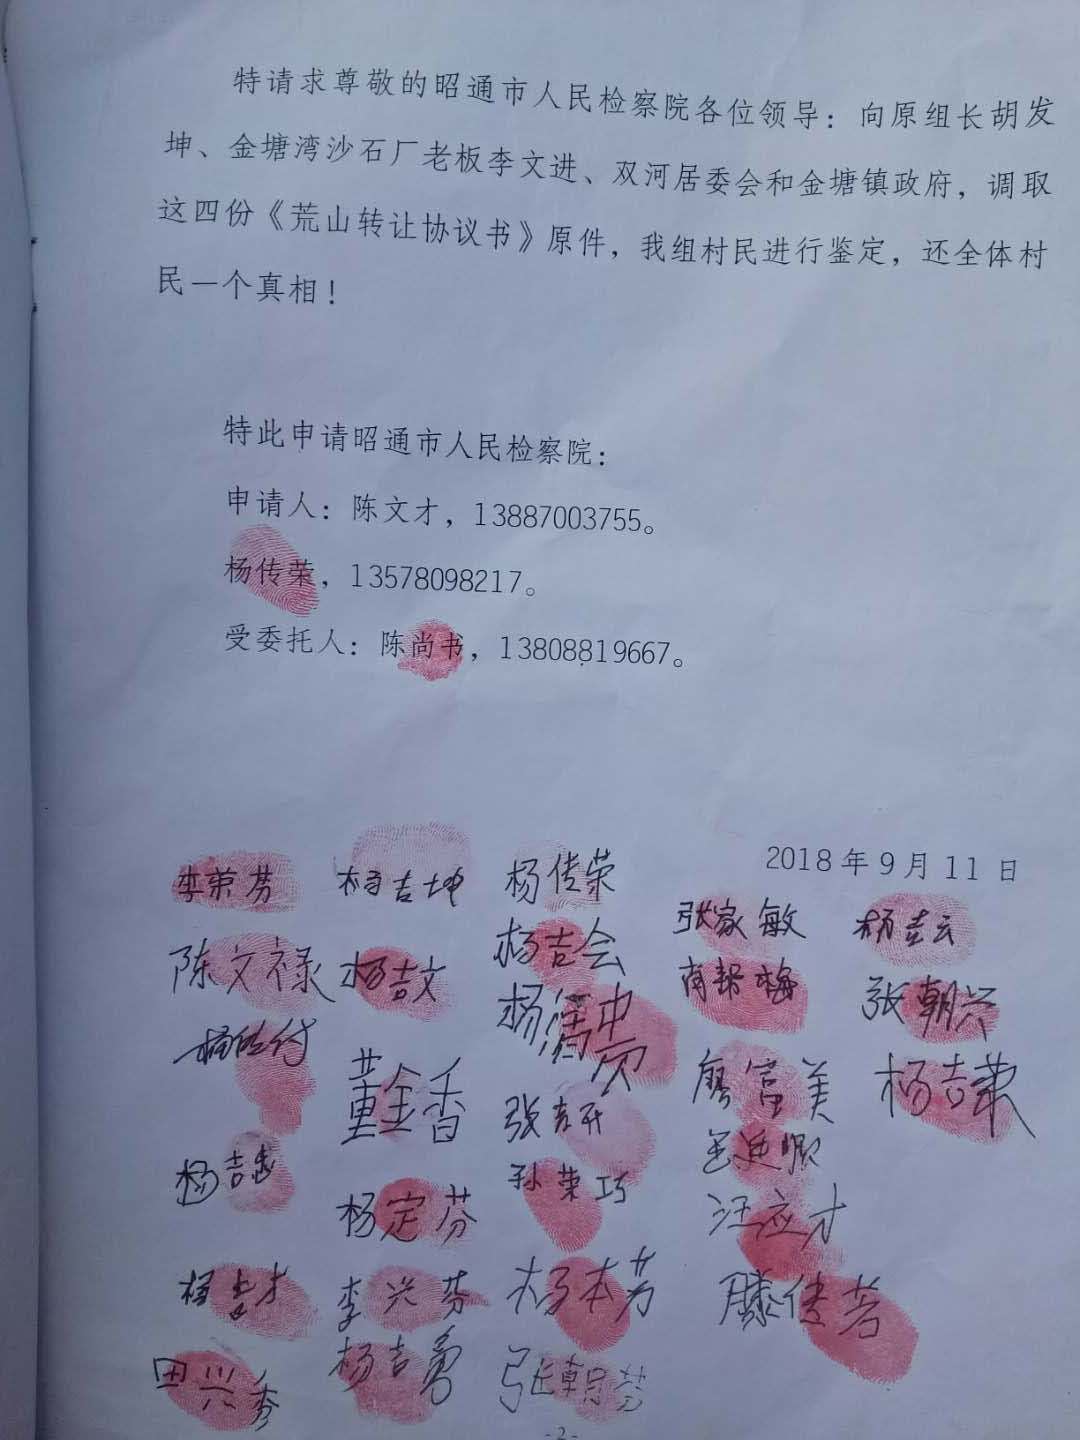 特请求尊敬的昭通市人民检察院各位领导：向原组长胡发
坤、金塘湾沙石厂老板李文进、双河居委会和金塘镇政府，调取
这四份《荒山转让协议书》原件，我组村民进行鉴定，还全体村
民一个真相！
特此申请昭通市人民检察院：
申请人：陈文才，13887003755。
杨传荣，13578098217。
受委托人：陈尚书，13808819667。
2018年9月11日
李荣芬 杨吉坤 杨传荣
张家敏 杨吉云
陈文禄 杨吉文 杨吉会
张朝兴
董金香
廖富美 杨吉荣
张吉开
孙荣巧
杨定芬 汪应才
杨吉才 李兴芬 杨本芳 滕传芳
田兴秀 杨吉勇 张朝芬
-2-